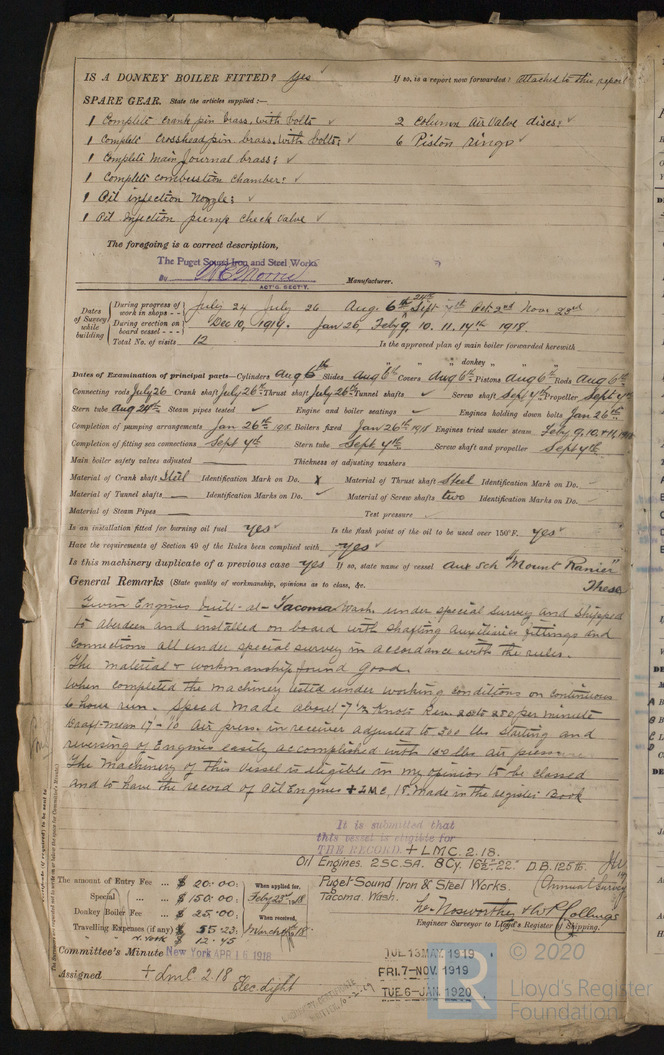 IS A DONKEY BOILER FITTED? Yes If so, is a report now forwarded? attached to this report
SPARE GEAR. State the articles supplied:—
1 Complete crank pin brass, with bolts ✓ 2 Column air valve discs: ✓
1 Complete crosshead pin brass, with bolts: ✓ 6 Piston rings ✓
1 Complete main Journal brass: ✓
1 Complete combustion chamber: ✓
1 Oil injection Nozzle: ✓
1 Oil Injection pump check valve ✓
The foregoing is a correct description,
The Puget Sound Iron and Steel Works
By Manufacturer.
ACT'G. SECT'Y.
Dates of Survey while building
During progress of work in shops -- July 24 July 26 Aug. 6th 24th Sept 4th Oct. 2nd Nov. 23rd
During erection on board vessel --- Dec 10, 1917. Jan 26, Feby 9, 10. 11. 14th 1918
Total No. of visits 12 Is the approved plan of main boiler forwarded herewith
" " donkey " "
Dates of Examination of principal parts—Cylinders Aug 6th Slides Aug 6th Covers Aug 6th Pistons Aug 6th Rods Aug 6th
Connecting rods July 26 Crank shaft July 26th Thrust shaft July 26th Tunnel shafts ✓ Screw shaft Sept 4th Propeller Sept 4th
Stern tube Aug 24th Steam pipes tested ✓ Engine and boiler seatings ✓ Engines holding down bolts Jan 26th
Completion of pumping arrangements Jan 26th 1918 Boilers fixed Jan 26th 1918 Engines tried under steam Feby 9, 10, & 11, 1918
Completion of fitting sea connections Sept 4th Stern tube Sept 4th Screw shaft and propeller Sept 4th
Main boiler safety valves adjusted Thickness of adjusting washers
Material of Crank shaft Steel Identification Mark on Do. X Material of Thrust shaft Steel Identification Mark on Do. ✓
Material of Tunnel shafts Identification Marks on Do. ✓ Material of Screw shafts two Identification Marks on Do. ✓
Material of Steam Pipes Test pressure ✓
Is an installation fitted for burning oil fuel yes ✓ Is the flash point of the oil to be used over 150°F. yes ✓
Have the requirements of Section 49 of the Rules been complied with yes ✓
Is this machinery duplicate of a previous case yes If so, state name of vessel Aux Sch "Mount Ranier"
General Remarks (State quality of workmanship, opinions as to class, &c. These
Twin Engines built at Tacoma Wash under special survey and shipped
to Aberdeen and installed on board with shafting auxiliaries fittings and
connections all under special survey in accordance with the rules.
The material & workmanship found good.
When completed the machinery tested under working conditions on continuous
6 hour run. Speed made about 7½ Knots Rev. 240 to 250 per minute
Draft mean 17'-10 Air press. in receiver adjusted to 300 lbs Starting and
reversing of Engines easily accomplished with 150 lbs air pressure.
The Machinery of this Vessel is eligible in my opinion to be classed
and to have the record of Oil Engines + LMC, 18. made in the register Book
It is submitted that
this vessel is eligible for
THE RECORD. + LMC. 2.18.
Oil Engines. 2SC.SA. 8Cy. 16½-22" D.B. 125 lb.
The amount of Entry Fee ... $ 20.00: When applied for,
Special ... $ 150.00: Feby 23rd 18
Donkey Boiler Fee ... $ 25.00: When received,
Travelling Expenses (if any) $ 55.23: March 18
" N. York $ 12.45
Puget Sound Iron & Steel Works. (Annual Survey
Tacoma Wash.
L. Nosworthy & W. P. Collings
Engineer Surveyor to Lloyd's Register of Shipping.
Committee's Minute New York APR 16 1918
Assigned + LMC 2.18 Elec. light
TUE 13 MAY 1919
FRI. 7-NOV. 1919
TUE. 6-JAN. 1920
© 2020
LR
Lloyd's Register
Foundation